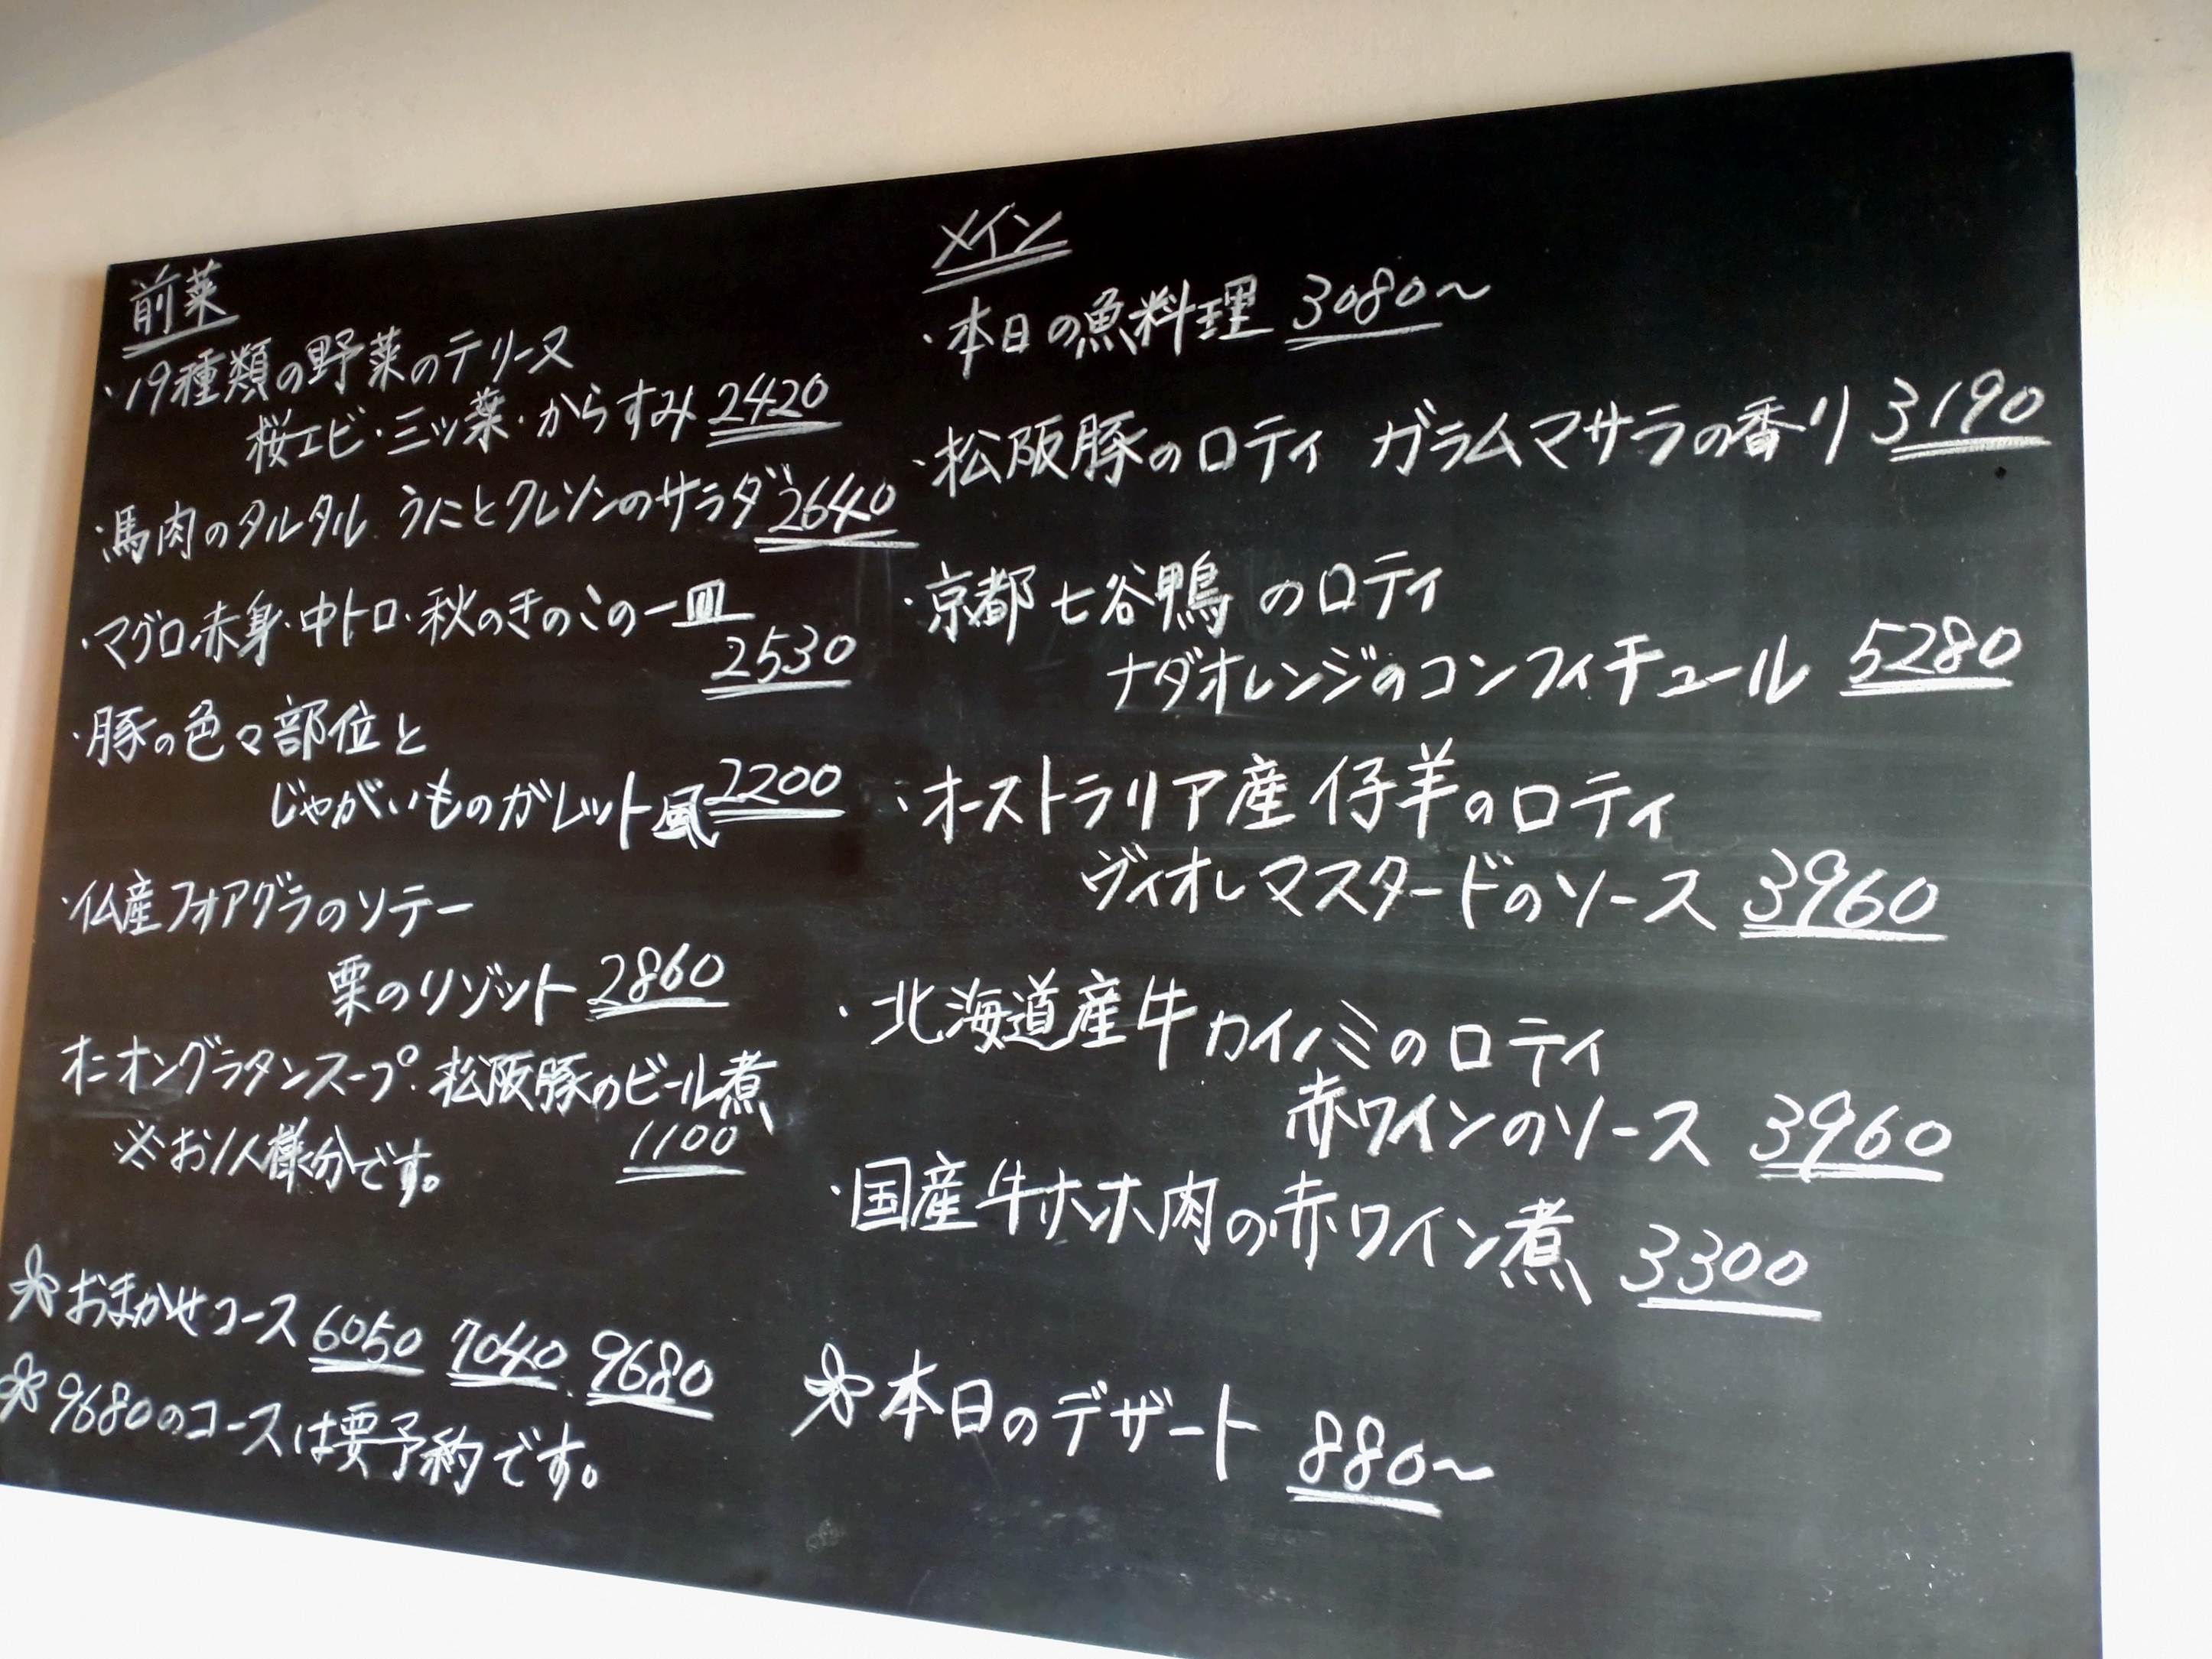 前菜
・19種類の野菜のテリーヌ
桜エビ・三ッ葉・からすみ 2420
・馬肉のタルタル うにとクレソンのサラダ 2640
・マグロ赤身・中トロ・秋のきのこの一皿
2530
・豚の色々部位と
じゃがいものガレット風 2200
・仏産フォアグラのソテー
栗のリゾット 2860
オニオングラタンスープ・松阪豚のビール煮
※お1人様分です。 1100
おまかせコース 6050 7040 9680
9680のコースは要予約です。
メイン
・本日の魚料理 3080〜
・松阪豚のロティ ガラムマサラの香り 3190
・京都七谷鴨のロティ
ナダオレンジのコンフィチュール 5280
・オーストラリア産仔羊のロティ
ヴィオレマスタードのソース 3960
・北海道産牛カイノミのロティ
赤ワインのソース 3960
・国産牛ホホ肉の赤ワイン煮 3300
本日のデザート 880〜